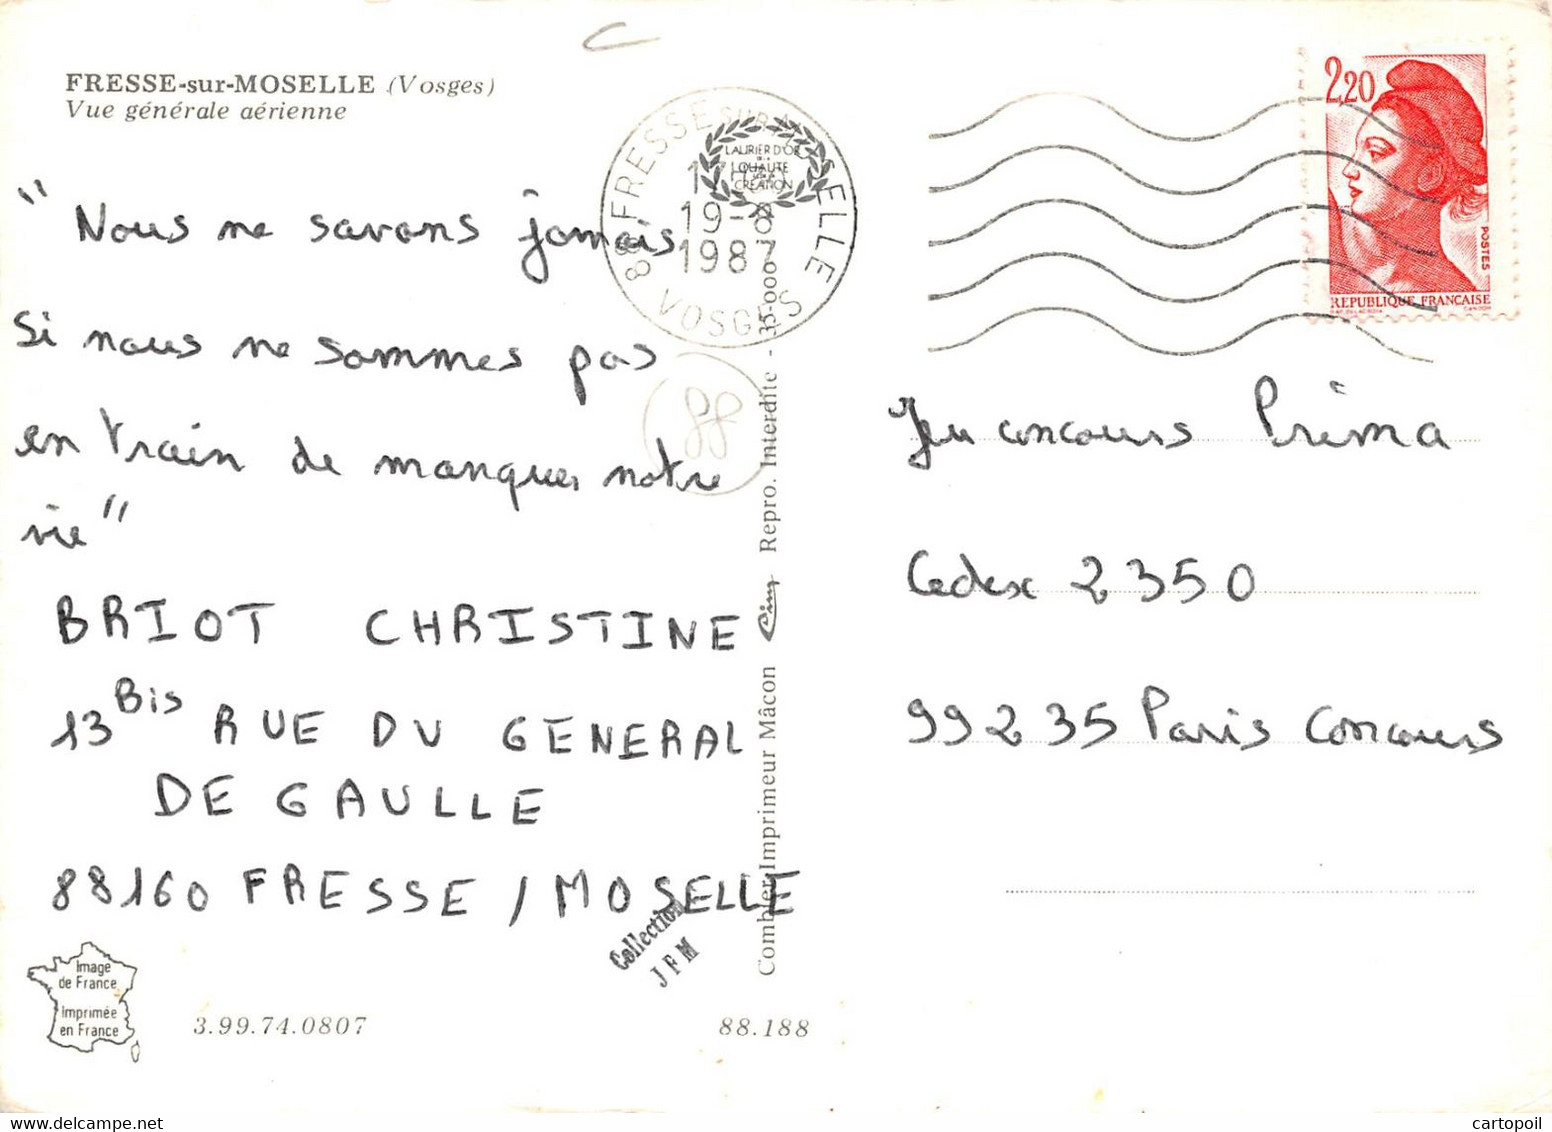 FRESSE-sur-MOSELLE (Vosges)
Vue générale aérienne
"Nous ne savons jamais
Si nous ne sommes pas
en train de manquer notre
vie"
BRIOT CHRISTINE
13 Bis RUE DU GENERAL
DE GAULLE
88160 FRESSE / MOSELLE
Image
de France
Imprimée
en France
3.99.74.0807
88.188
Collection
JFM
88 FRESSE SUR MOSELLE
19-8
1987
VOSGES
LAURIER D'OR
DE LA
QUALITE
CREATION
88
Combier Imprimeur Mâcon Cim Repro. Interdite - 35-000
2,20
POSTES
REPUBLIQUE FRANCAISE
Jeu concours Prima
Cedex 2350
99235 Paris Concours
cartopoil